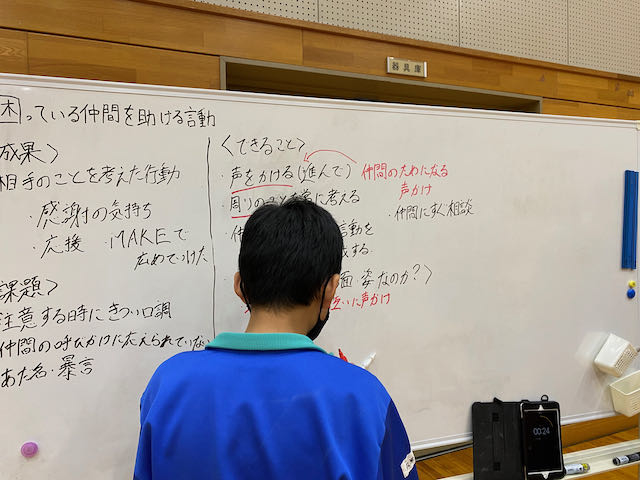 器具庫
困っている仲間を助ける言動
成果〉
相手のことを考えた行動
感謝の気持ち
・応援 ・MAKEで
広めていけた
課題〉
注意する時にきつい口調
仲間の呼びかけに応えられていない
あだ名・暴言
〈できること〉
・声をかける(進んで)
仲間のためになる
声かけ
・周りの
に考える
・仲間にすぐ相談
言動を
する
面 姿なのか?〉
互いに声かけ
00:24